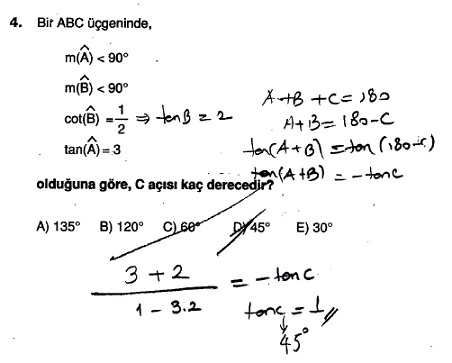 4. Bir ABC üçgeninde,
m(Â) < 90°
m(B̂) < 90°
cot(B̂) = 1/2 ⇒ tanB = 2
tan(Â) = 3
A+B+C=180
A+B=180-C
tan(A+B)=tan(180-c)
tan(A+B) = -tanc
olduğuna göre, C açısı kaç derecedir?
A) 135° B) 120° C) 60° D) 45° E) 30°
3+2 / 1-3.2 = -tanc
tanc = 1
45°